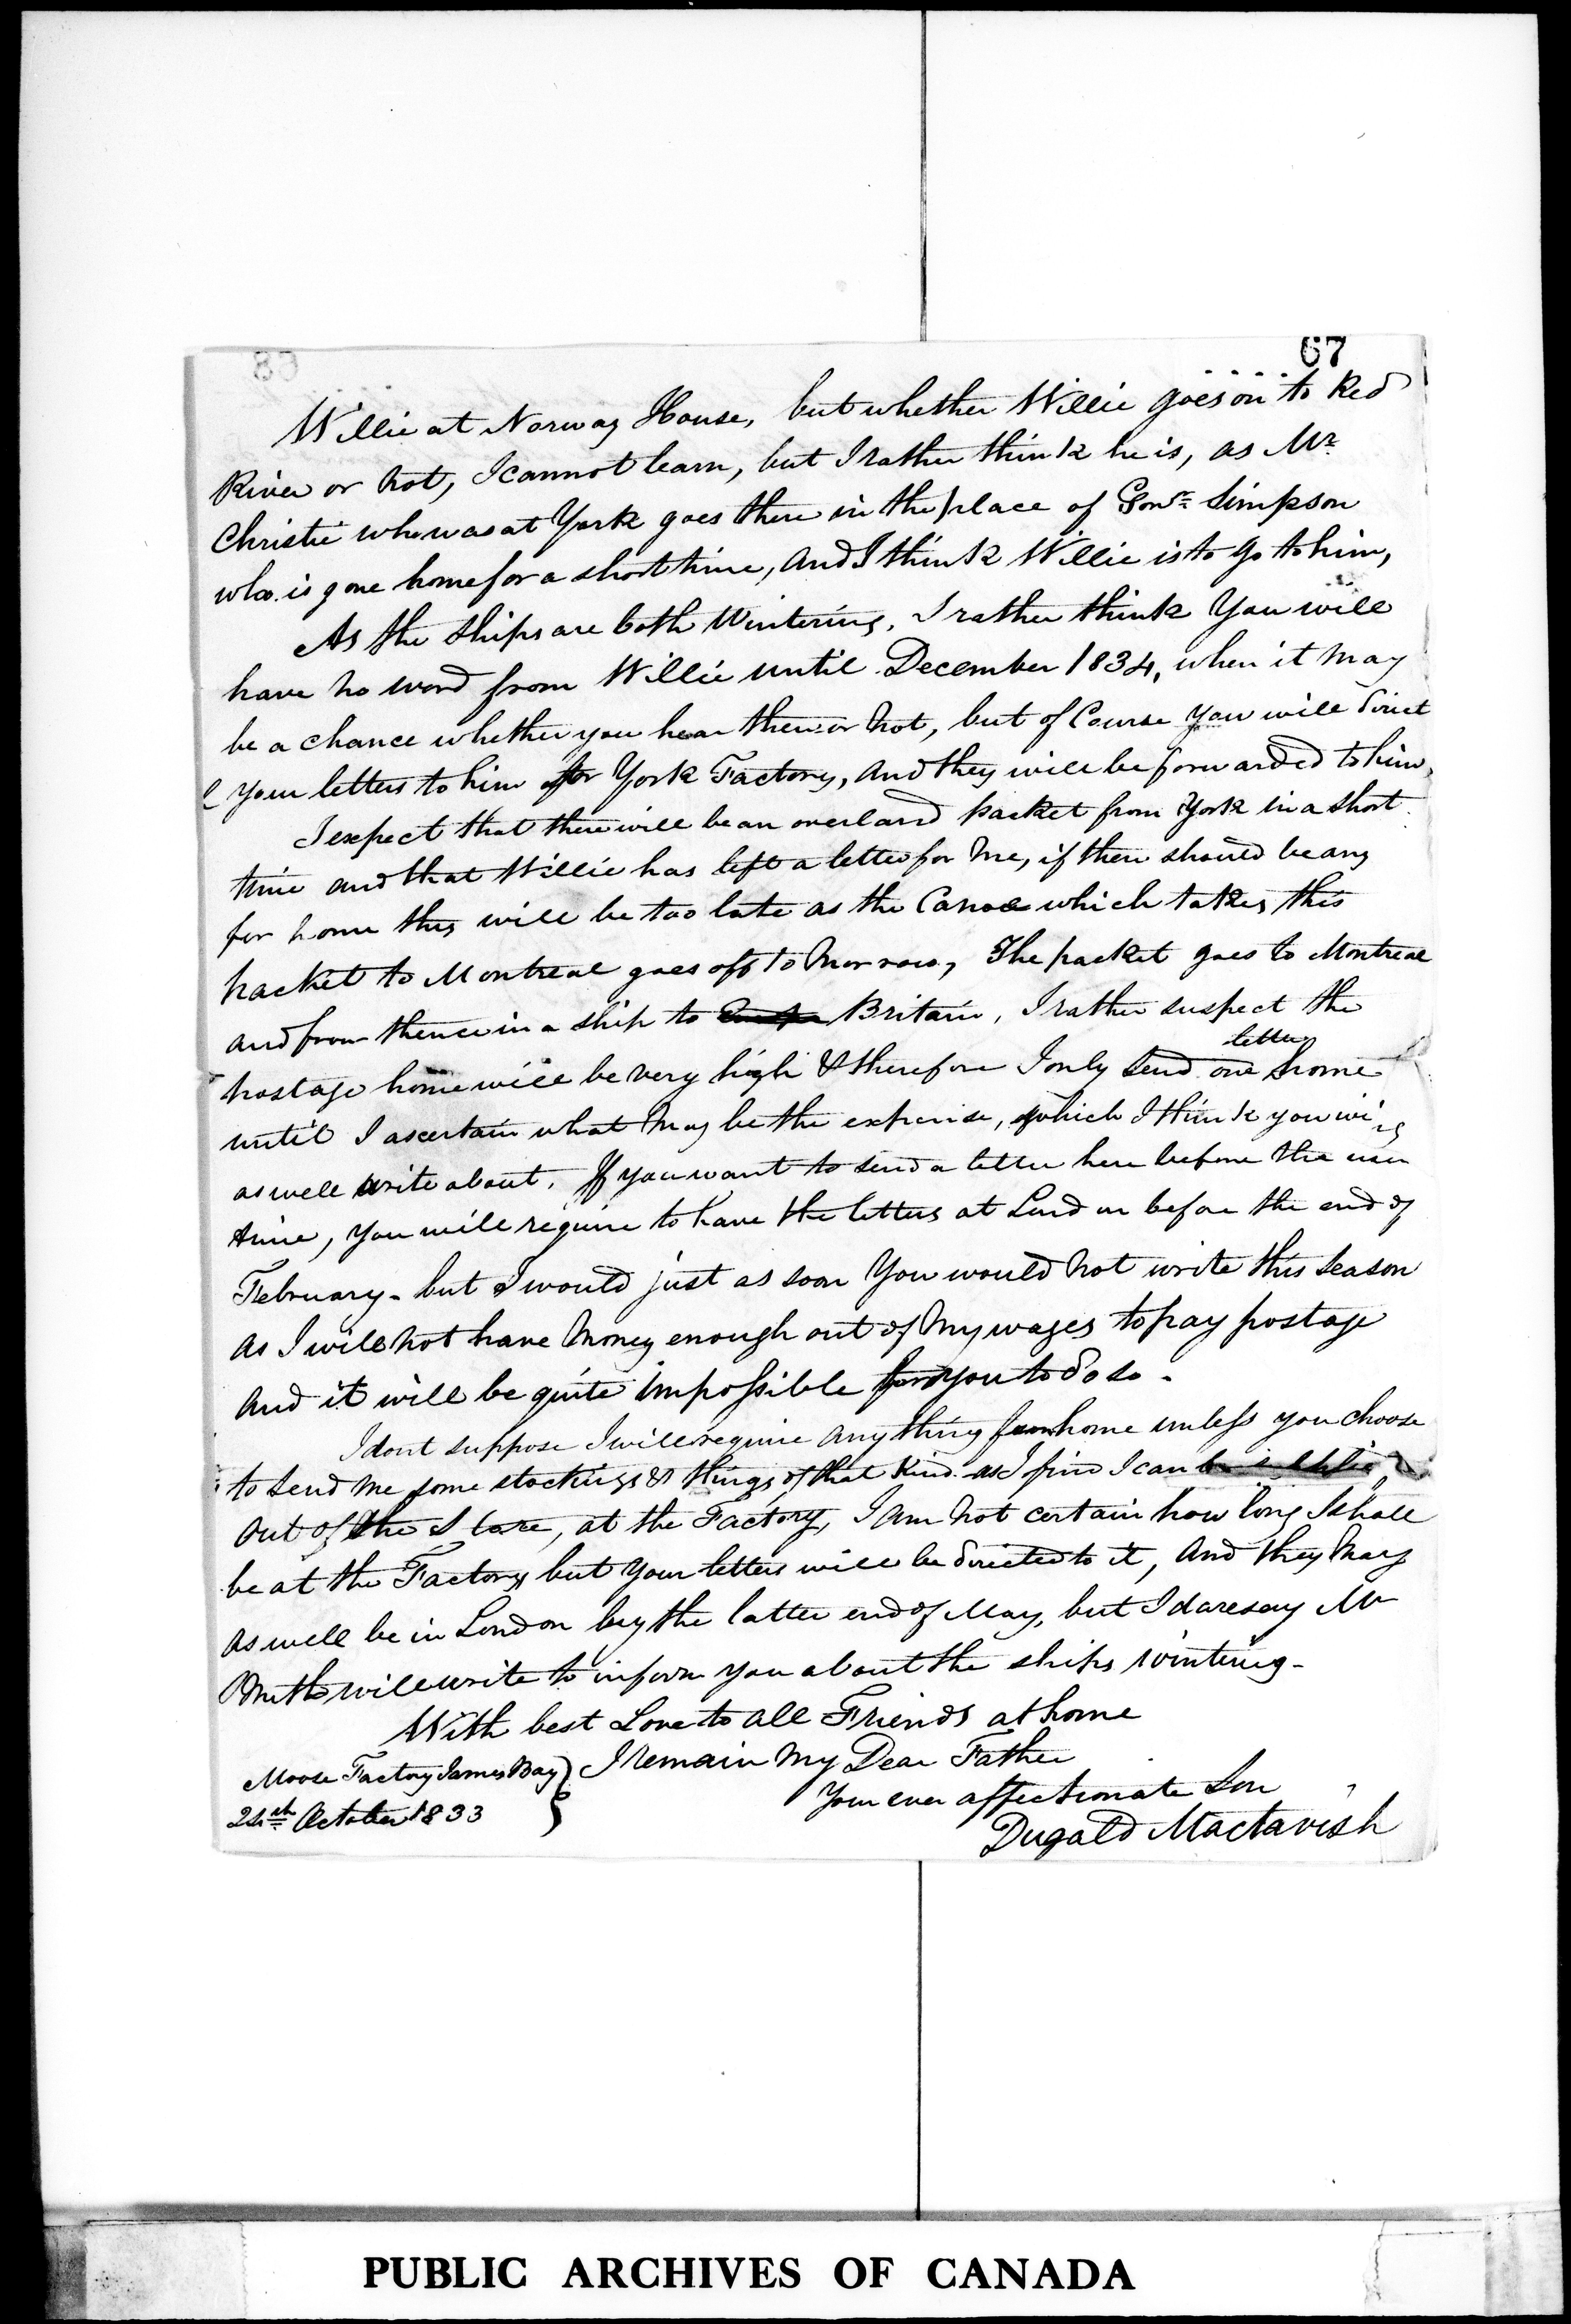 67
Willie at Norway House, but whether Willie goes on to Red
River or not, I cannot learn, but I rather think he is, as Mr
Christie who was at York goes there in the place of Govr Simpson
who is gone home for a short time, And I think Willie is to go to him,
As the Ships are both Wintering, I rather think You will
have no word from Willie until December 1834, when it may
be a chance whether you hear then or not, but of Course you will direct
your letters to him for York Factory, and they will be forwarded to him,
I expect that there will be an overland packet from York in a short
time and that Willie has left a letter for me, if there should be any
for home they will be too late as the Canoe which takes this
packet to Montreal goes off to Morrow, The packet goes to Montreal
and from thence in a ship to Britain, I rather suspect the
letter
postage home will be very high & therefore I only send one home
until I ascertain what may be the expense, which I think you
as well write about. If you want to send a letter here before the
time, you will require to have the letters at London before the end of
February - but I would just as soon You would not write this Season
as I will not have Money enough out of My wages to pay postage
And it will be quite impossible for you to do so -
I dont suppose I will require any thing from home unless you choose
to send me some stockings & things of that kind as I find I can
out of the Store, at the Factory, I am not certain how long I shall
be at the Factory but your letters will be directed to it, And they May
as well be in London by the latter end of May, but I daresay Mr
Smith will write to inform you about the ships wintering -
With best Love to all Friends at home
I remain My Dear Father
Your ever affectionate Son
Dugald Mactavish
Moose Factory James Bay
24th October 1833
PUBLIC ARCHIVES OF CANADA